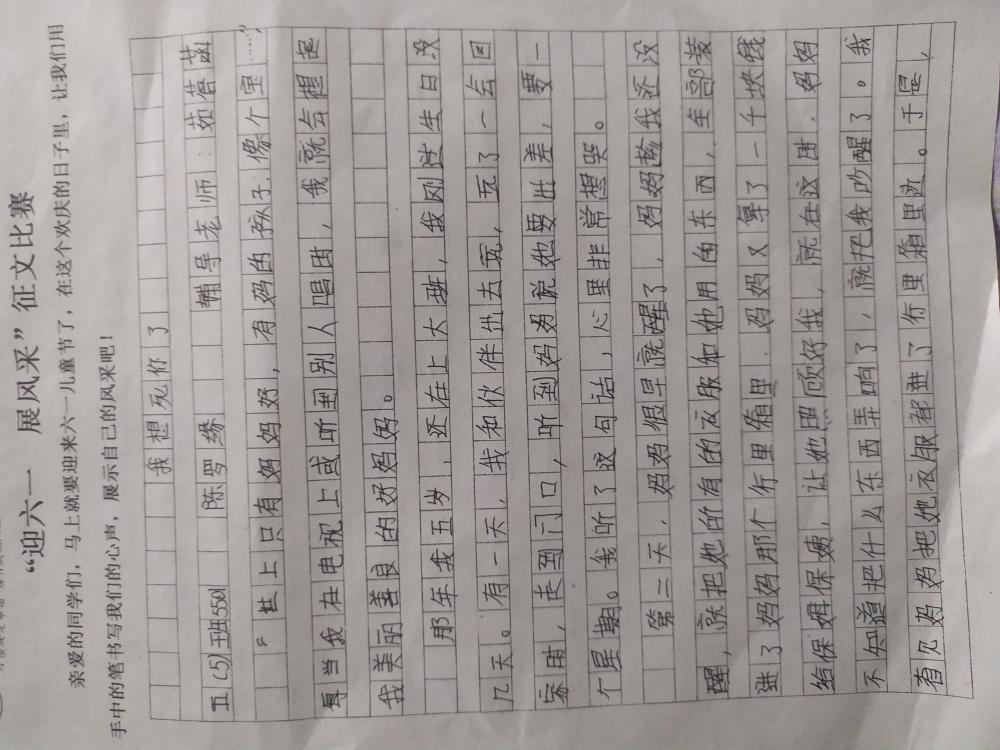 “迎六一 展风采”征文比赛
亲爱的同学们，马上就要迎来六一儿童节了，在这个欢庆的日子里，让我们用
手中的笔书写我们的心声，展示自己的风采吧！
我想死你了
五(5)班5501 陈罗缘 辅导老师：茹蓓蓓
“世上只有妈妈好，有妈的孩子.像个宝……”
每当我在电视上或听到别人唱时，我就会想起
我美丽善良的好妈妈。
那年我五岁，还在上大班，我刚过生日没
几天。有一天，我和伙伴出去玩，玩了一会回
家时，走到门口，听到妈妈说她要出差，要一
个星期。我听了这句话，心里非常想哭。
第二天，妈妈很早就醒了，妈妈趁我还没
醒，就把她所有的衣服和她用的东西，全部装
进了妈妈那个行里箱里.妈妈又拿了一千块钱
给保姆保姨，让她照顾好我，就在这时.妈妈
不知道把什么东西弄响了，就把我吵醒了。我
看见妈妈把她衣服都进了行里箱里边。于是，